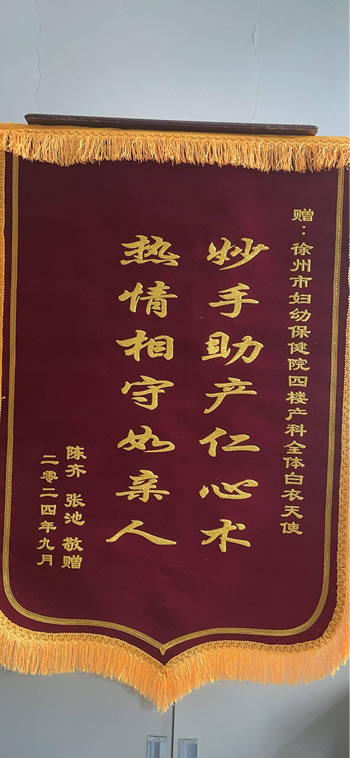 赠：徐州市妇幼保健院四楼产科全体白衣天使
妙手助产仁心术
热情相守如亲人
陈齐 张池 敬赠
二零二四年九月